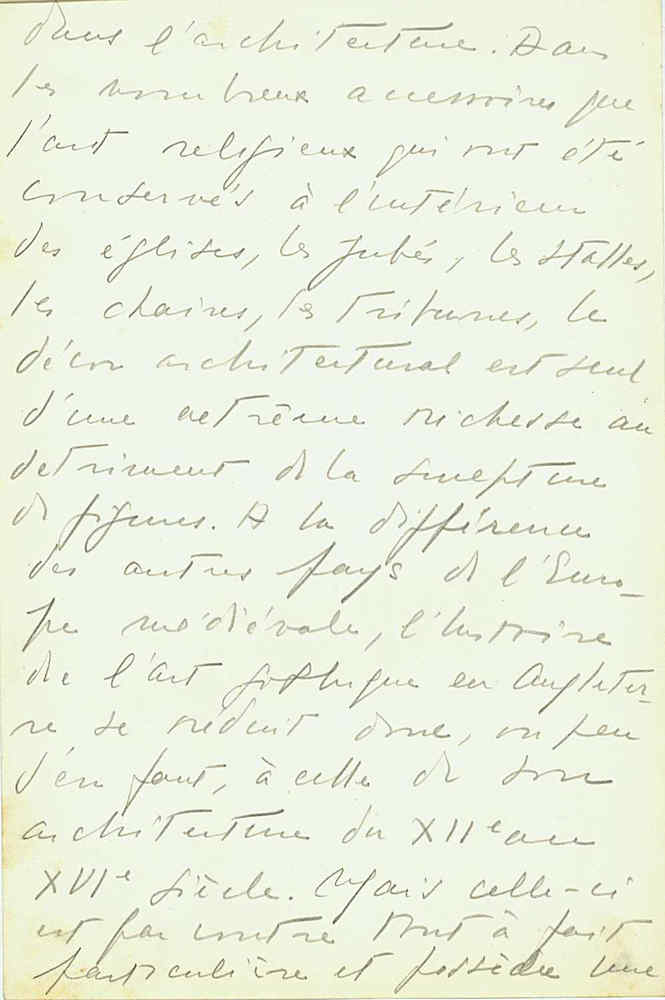 dans l'architecture. Dans
les nombreux accessoires que
l'art religieux qui ont été
conservés à l'intérieur
des églises, les jubés, les stalles,
les chaires, les tribunes, le
décor architectural est seul
d'une extrême richesse au
detriment de la sculpture
de figures. A la différence
des autres pays de l'Euro-
pe médiévale, l'histoire
de l'art gothique en Angleter-
re se réduit donc, ou peu
s'en faut, à celle de son
architecture du XIIe au
XVIe siècle. Mais celle-ci
est par contre tout à fait
particulière et possède une